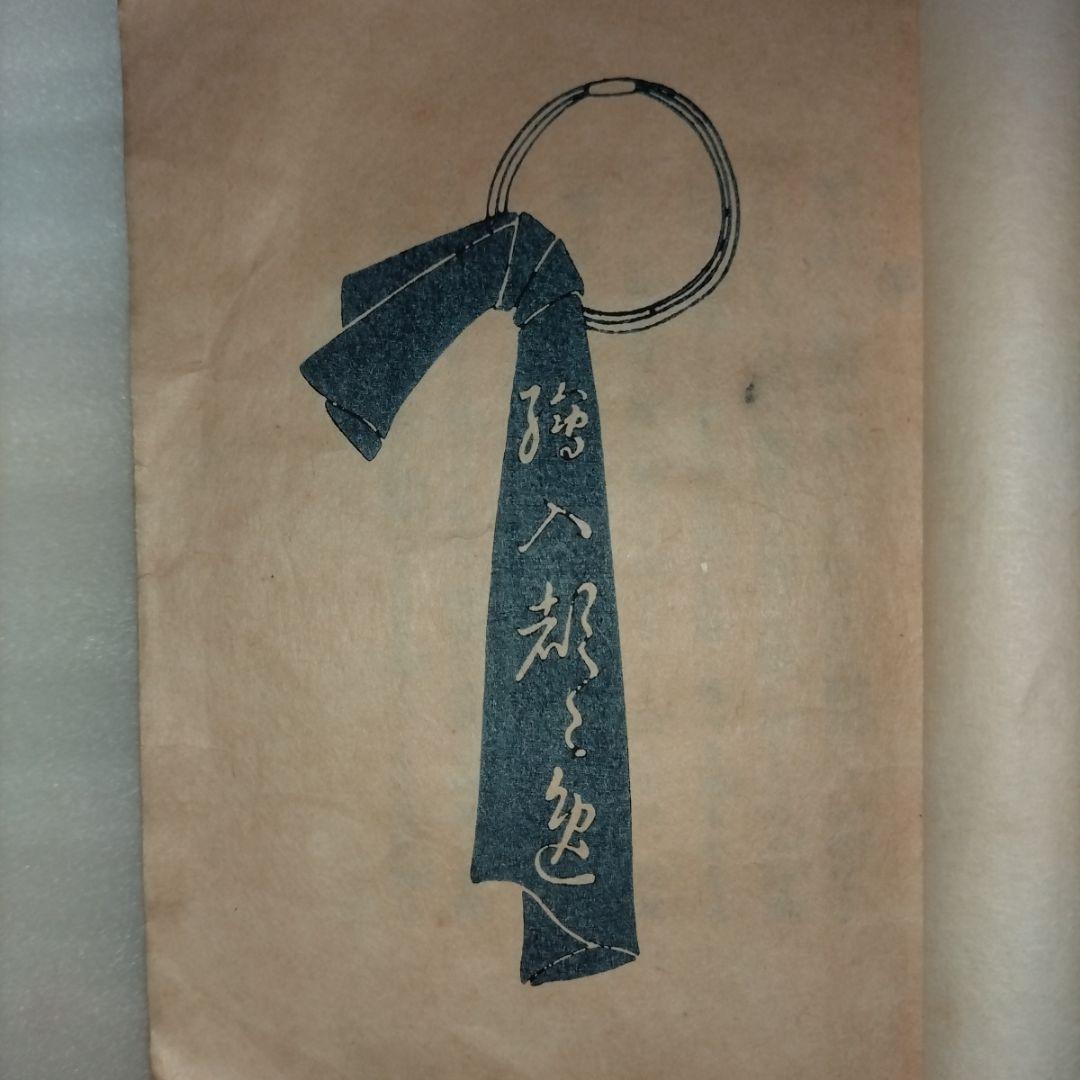 繪入都々逸